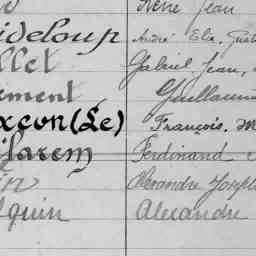 René Jean
ideloup André Elie, Gust
llet Gabriel Jean,
ement Guillaum
xcon (Le) François. M
Harem Ferdinand
in Alexandre Joseph
lquin Alexandre